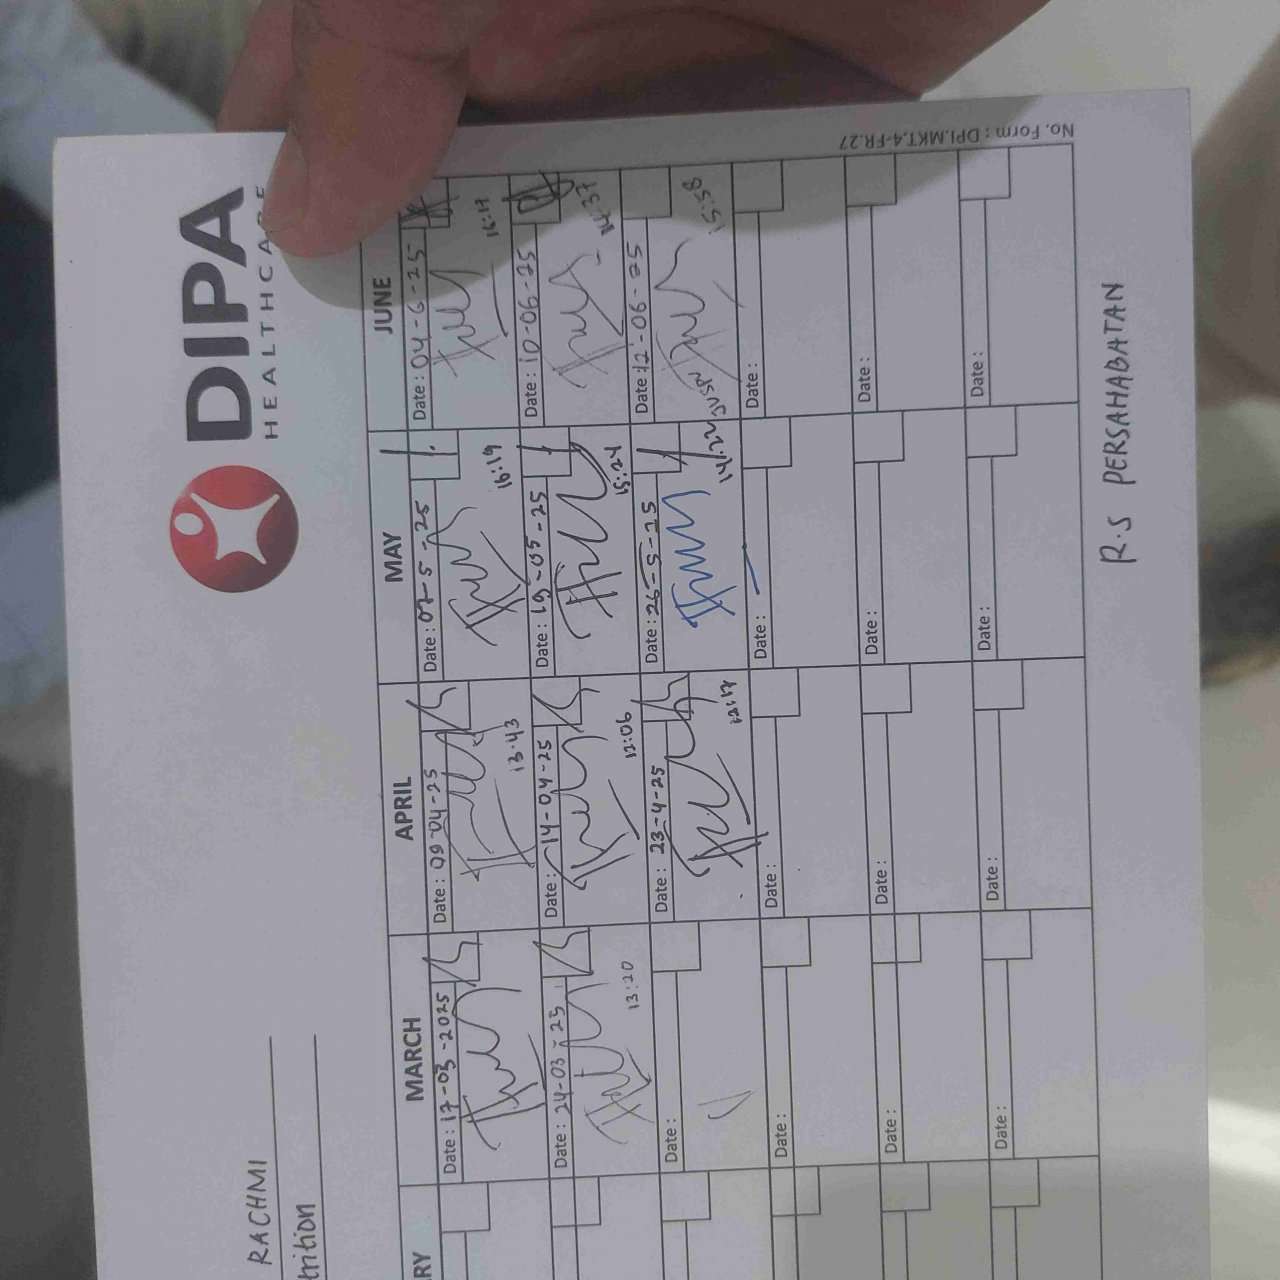 DIPA
HEALTHCARE
RACHMI
trition
RY
MARCH
APRIL
MAY
JUNE
Date : 17-03-2025
Date : 09-04-25
Date : 07-5-25
Date : 04-6-25
13.43
16:19
16:17
Date : 24-03-25
Date : 14-04-25
Date : 19-05-25
Date : 10-06-25
13:20
12:06
15:24
14:37
Date :
Date : 23-4-25
Date : 26-5-25
Date : 12-06-25
12:17
14:22
15:58
Date :
Date :
Date :
Date :
Date :
Date :
Date :
Date :
Date :
Date :
Date :
Date :
R.S PERSAHABATAN
No. Form : DPI.MKT.4-FR.27